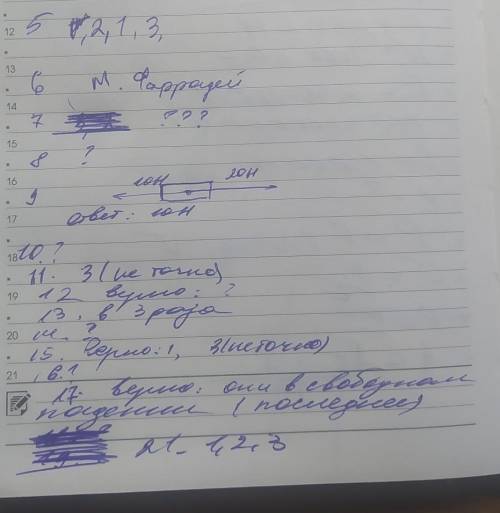 12
5 1, 2, 1, 3,
13
6 М. Фаррадей
14
7 ???
15
8 ?
16
10Н 20Н
9
17
ответ: 10Н
18
10. ?
11. 3 (не точно)
19
12 верно: ?
13. в 3 раза
20
14. ?
15. Верно: 1, 3 (не точно)
21
16. 1
17. верно: они в свободном
падении (последнее)
21 - 1, 2, 3